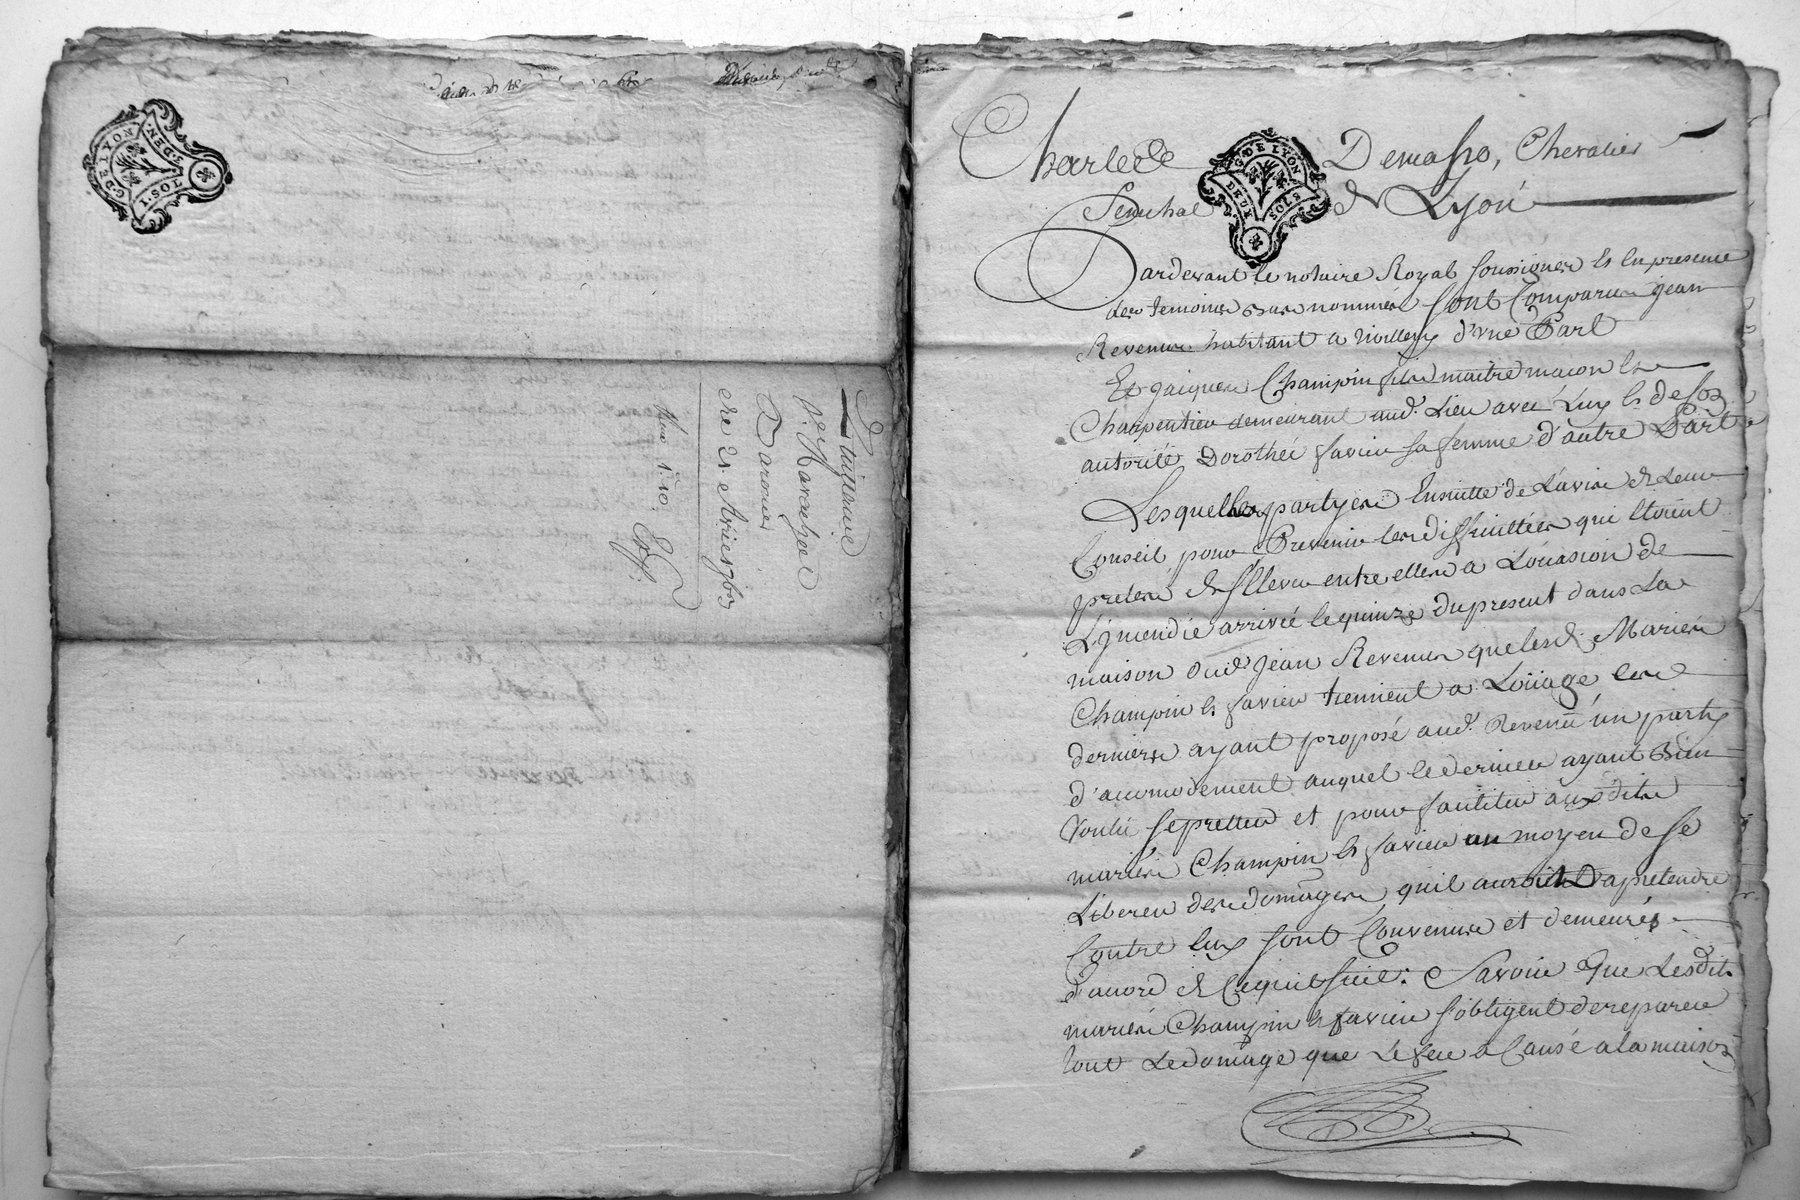 G. DE LYON
1. SOL
3. DEN.
Quittance
Marechal
a
Darones
du 21. Avrie 1763
1.# 10.
Exp.
Charle De Masso, Chevalier
Senechal de Lyon
G. DE LYON
DEUX SOLS
Pardevant le notaire Royal soussignez et en presence
des temoins bas nommés sont Comparus jean
Revenus habitant a d'une Part
Et jaiques Champin fils maitre macon et
Charpentier demeurant aud. Lieu avec Luy et de son
autorité Dorothée favier sa femme d'autre Part
Lesquelles partyes Ensuitte de L'avis de Leur
Conseil pour Prevenir les diffiultées qui Etoient
pretes de s'Elever entre elles a L'ocasion de
L'ymendie arrivée le quinze du present dans La
maison dud. jean Revenus que lesd. Mariés
Champin et favier tiennent a Loüage les
derniers ayant proposé aud. Revenü ün party
d'accomodement auquel le dernier ayant Bien
Voulü se pretter et pour faciliter aux dits
mariés Champin et favier au moyen de se
Liberer des domages quil auroit a pretendre
Contre luy sont Convenus et demeurés
d'acord de Ce qui suit: Savoir Que Lesdits
mariés Champin et favier s'obligent de reparer
tout Le domage que Le feu a Causé a la maison